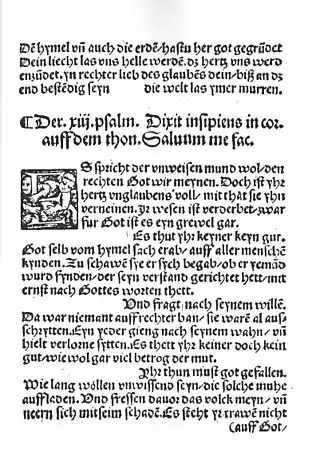 Dē hymel vñ auch die erdē/hastu her got gegrūdet
Dein liecht las vns helle werdē.dz hertz vns werd
enzūdet.yn rechter lieb des glaubēs dein/biß an dz
end bestēdig seyn die welt las ymer murren.
¶Der.xiij.psalm. Dixit insipiens in cor.
auff dem thon. Saluum me fac.
ES spricht der vnweisen mund wol/den
rechten Got wir meynen. Doch ist yhr
hertz vnglaubens voll/mit that sie yhn
verneinen. Jr wesen ist verderbet/zwar
für Got ist es eyn grewel gar.
Es thut yhr keyner keyn gut.
Got selb vom hymel sach erab/auff aller menschē
kynden. Zu schawē sye er sych begab/ob er yemād
wurd fynden/der seyn verstand gerichtet hett/mit
ernst nach Gottes worten thett.
Vnd fragt nach seynem willē.
Da war niemant auff rechter ban/sie warē al aus/
schrytten. Eyn yeder gieng nach seynem wahn/vñ
hielt verlorne sytten. Es thett yhr keiner doch kein
gut/wie wol gar viel betrog der mut.
Yhr thun must got gefallen.
Wie lang wöllen vnwissend seyn/die solche muhe
auffladen. Vnd fressen dauor das volck meyn/vñ
neern sich mit seim schadē. Es steht yr trawē nicht
(auff Got/